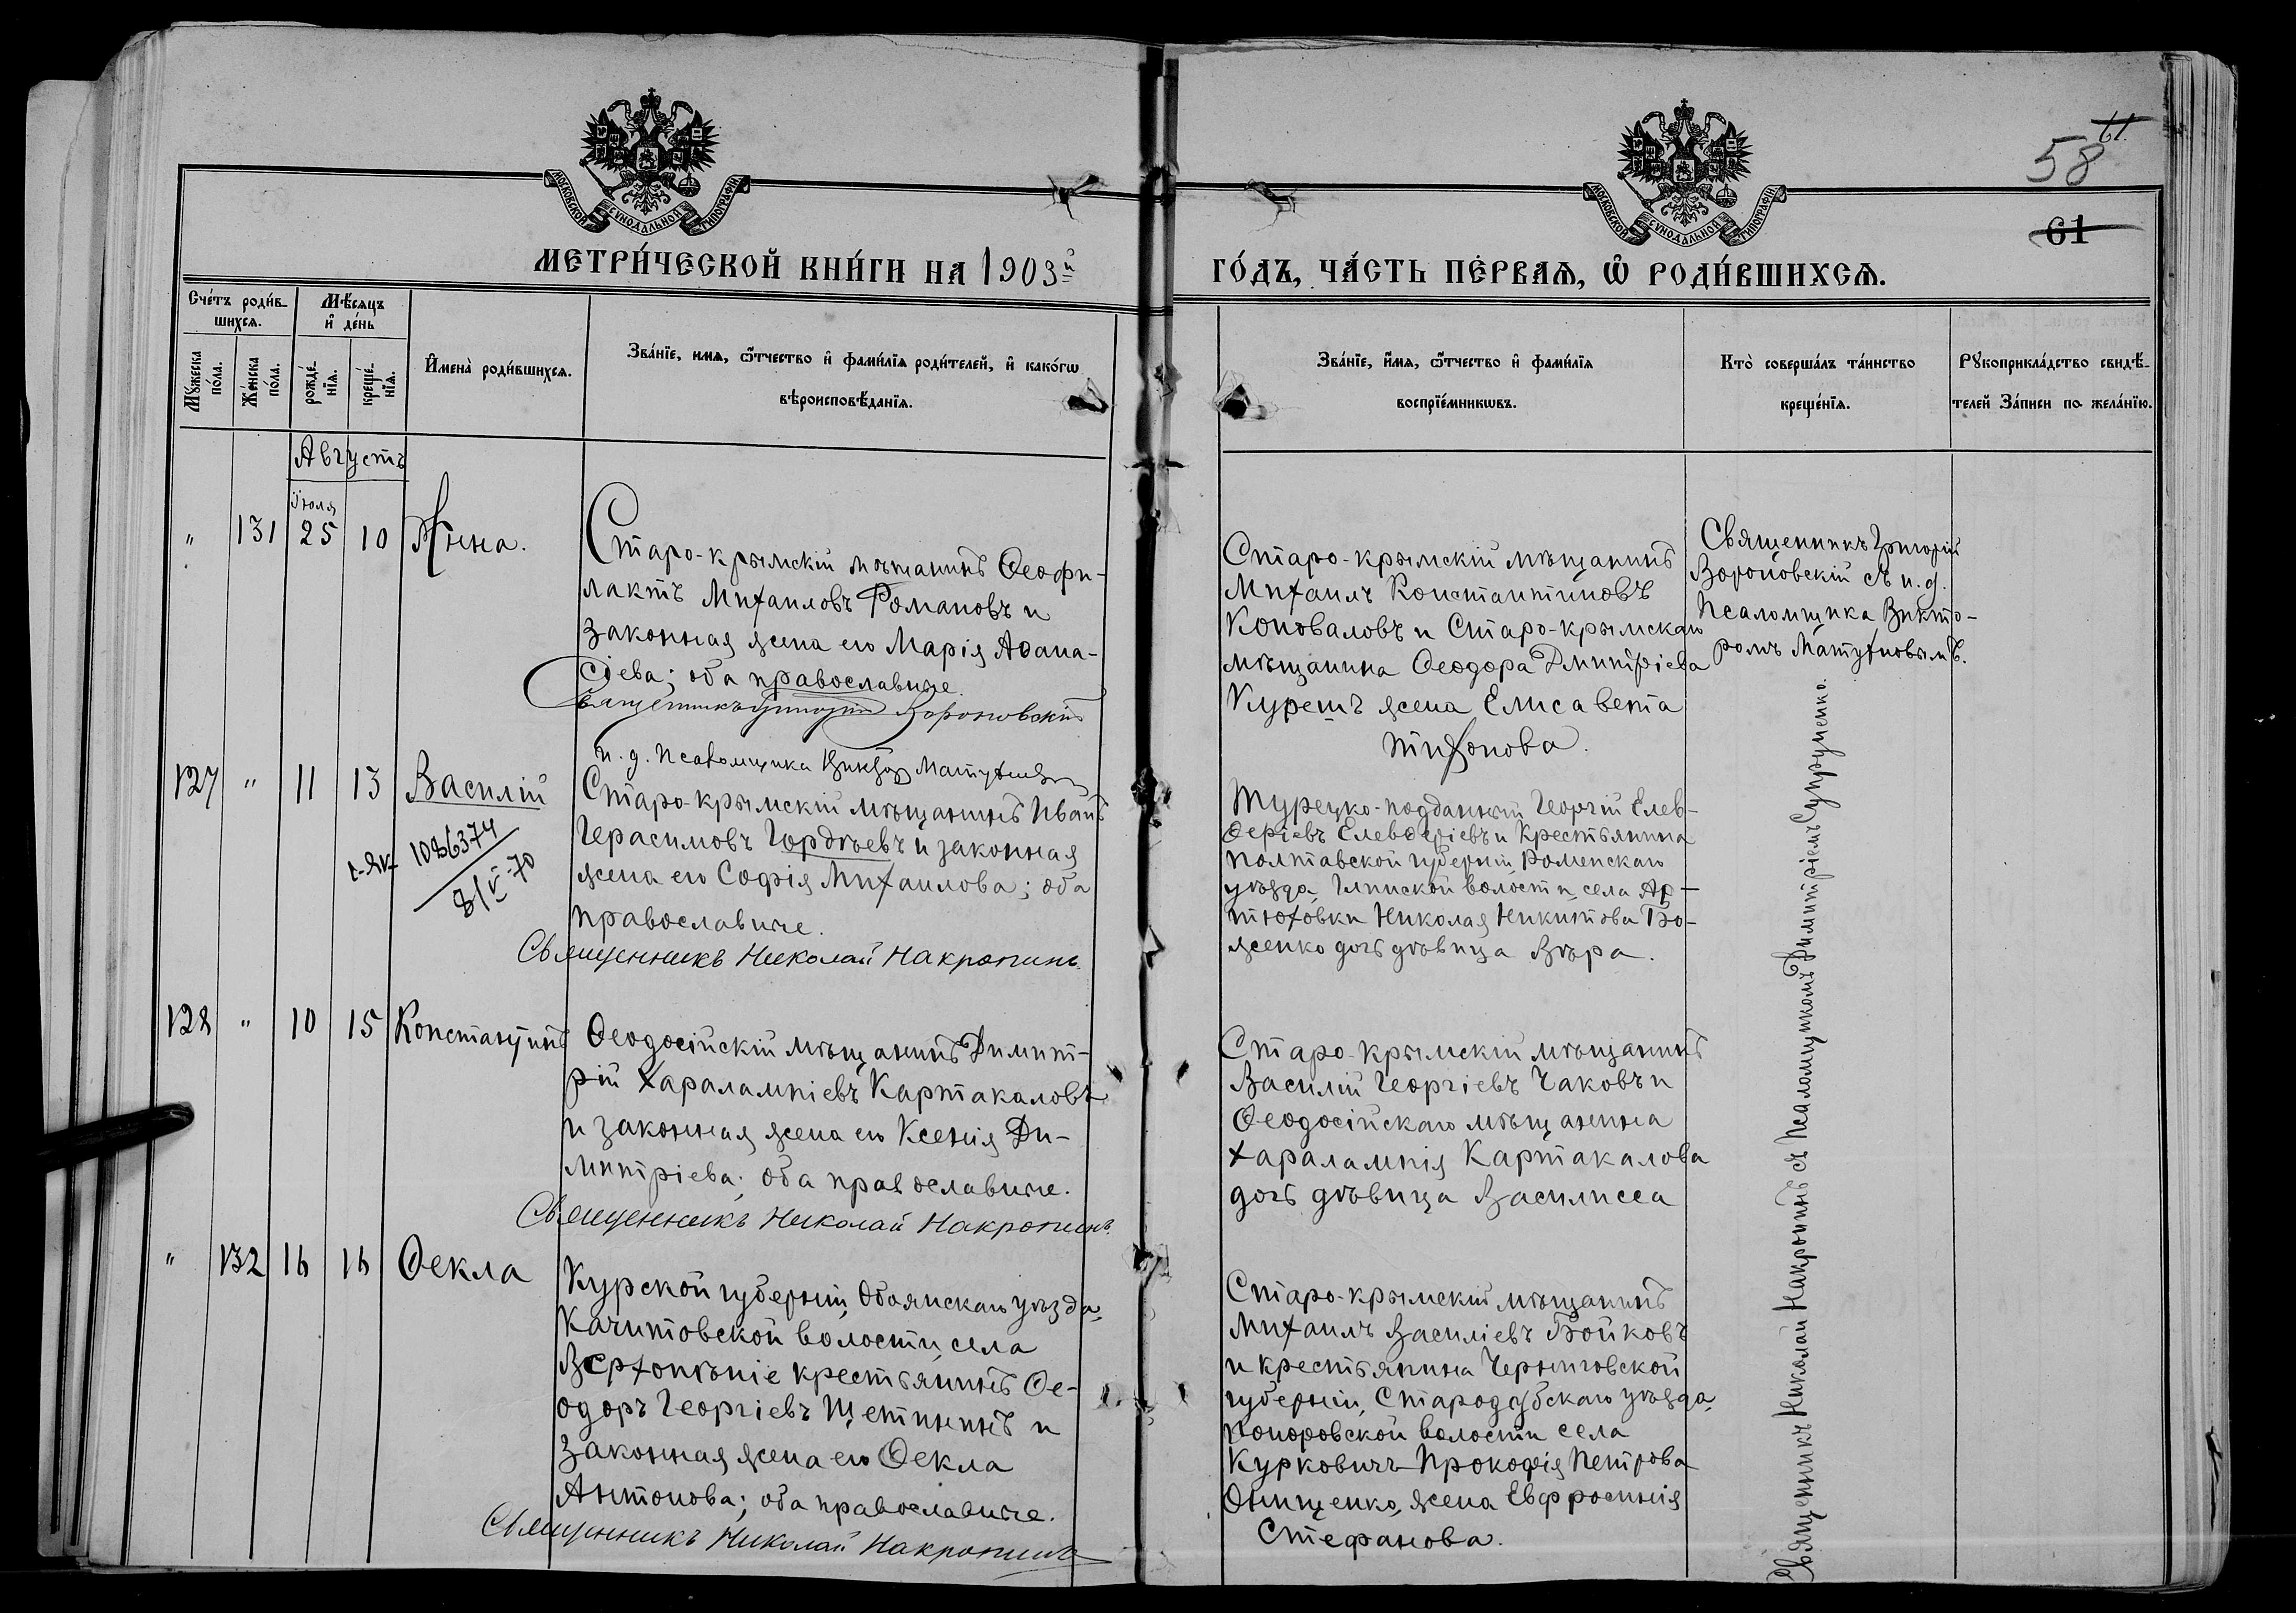 МОСКОВСКОЙ СѴНОДАЛЬНОЙ ТИПОГРАФІИ
МОСКОВСКОЙ СѴНОДАЛЬНОЙ ТИПОГРАФІИ
61
58
61
МЕТРИ́ЧЕСКОЙ КНИ́ГИ НА 1903й
ГО́ДЪ, ЧА́СТЬ ПЕ́РВАѦ, Ѡ҆ РОДИ́ВШИХСѦ.
Сче́тъ роди́в-
шихсѧ.
Мꙋ́жеска
по́ла.
Же́нска
по́ла.
Мѣ́сѧцъ
и҆ де́нь
рожде́-
нїѧ.
креще́-
нїѧ.
И҆мена̀ роди́вшихсѧ.
Зва́нїе, имѧ, ѻ҆́тчество и҆ фами́лїѧ роди́телей, и҆ како́гѡ
вѣроисповѣ́данїѧ.
Зва́нїе, и҆́мѧ, ѻ҆́тчество и҆ фами́лїѧ
воспрїе́мникѡвъ.
Кто̀ соверша́лъ та́инство
креще́нїѧ.
Рꙋкоприкла́дство свидѣ́-
телей За́писи по жела́нїю.
Августъ
Іюля
" 131 25 10 Анна.
Старо-крымскій мѣщанинъ Ѳеофи-
лактъ Михаиловъ Романовъ и
законная жена его Марія Аѳана-
сіева; оба православные.
Священникъ Григорій Вороновскій
и. д. псаломщика Викторъ Матухновъ
Старо-крымскій мѣщанинъ
Михаилъ Константиновъ
Коноваловъ и Старо-крымскаго
мѣщанина Ѳеодора Дмитріева
Курешъ жена Елисавета
Тихонова.
Священникъ Григорій
Вороновскій съ и. д.
псаломщика Викто-
ромъ Матухновымъ.
127 " 11 13 Василій
1-ЯК 1086374
8/V-70
Старо-крымскій мѣщанинъ Иванъ
Герасимовъ Гордѣевъ и законная
жена его Софія Михаилова; оба
православные.
Священникъ Николай Накропинъ.
Турецко-подданный Георгій Елев-
ѳеріевъ Елевѳеріевъ и крестьянина
Полтавской губерніи, Роменскаго
уѣзда, Глинской волости, села Ар-
тюховки Николая Никитова Бо-
женко дочь дѣвица Вѣра.
128 " 10 15 Константинъ
Ѳеодосійскій мѣщанинъ Димит-
рій Харалампіевъ Картакаловъ
и законная жена его Ксенія Ди-
митріева; оба православные.
Священникъ Николай Накропинъ.
Старо-крымскій мѣщанинъ
Василій Георгіевъ Чаковъ и
Ѳеодосійскаго мѣщанина
Харалампія Картакалова
дочь дѣвица Василисса
" 132 16 16 Ѳекла
Курской губерніи, Обоянскаго уѣзда,
волости, села
крестьянинъ Ѳе-
одоръ Георгіевъ Щетининъ и
законная жена его Ѳекла
Антонова; оба православные.
Священникъ Николай Накропинъ
Старо-крымскій мѣщанинъ
Михаилъ Василіевъ Бойковъ
и крестьянина Черниговской
губерніи, Стародубскаго уѣзда,
волости села
Курковичъ Прокофія Петрова
Онищенко, жена Евфросинія
Стефанова.
Священникъ Николай Накропинъ съ псаломщикомъ Димитріемъ Супруненко.